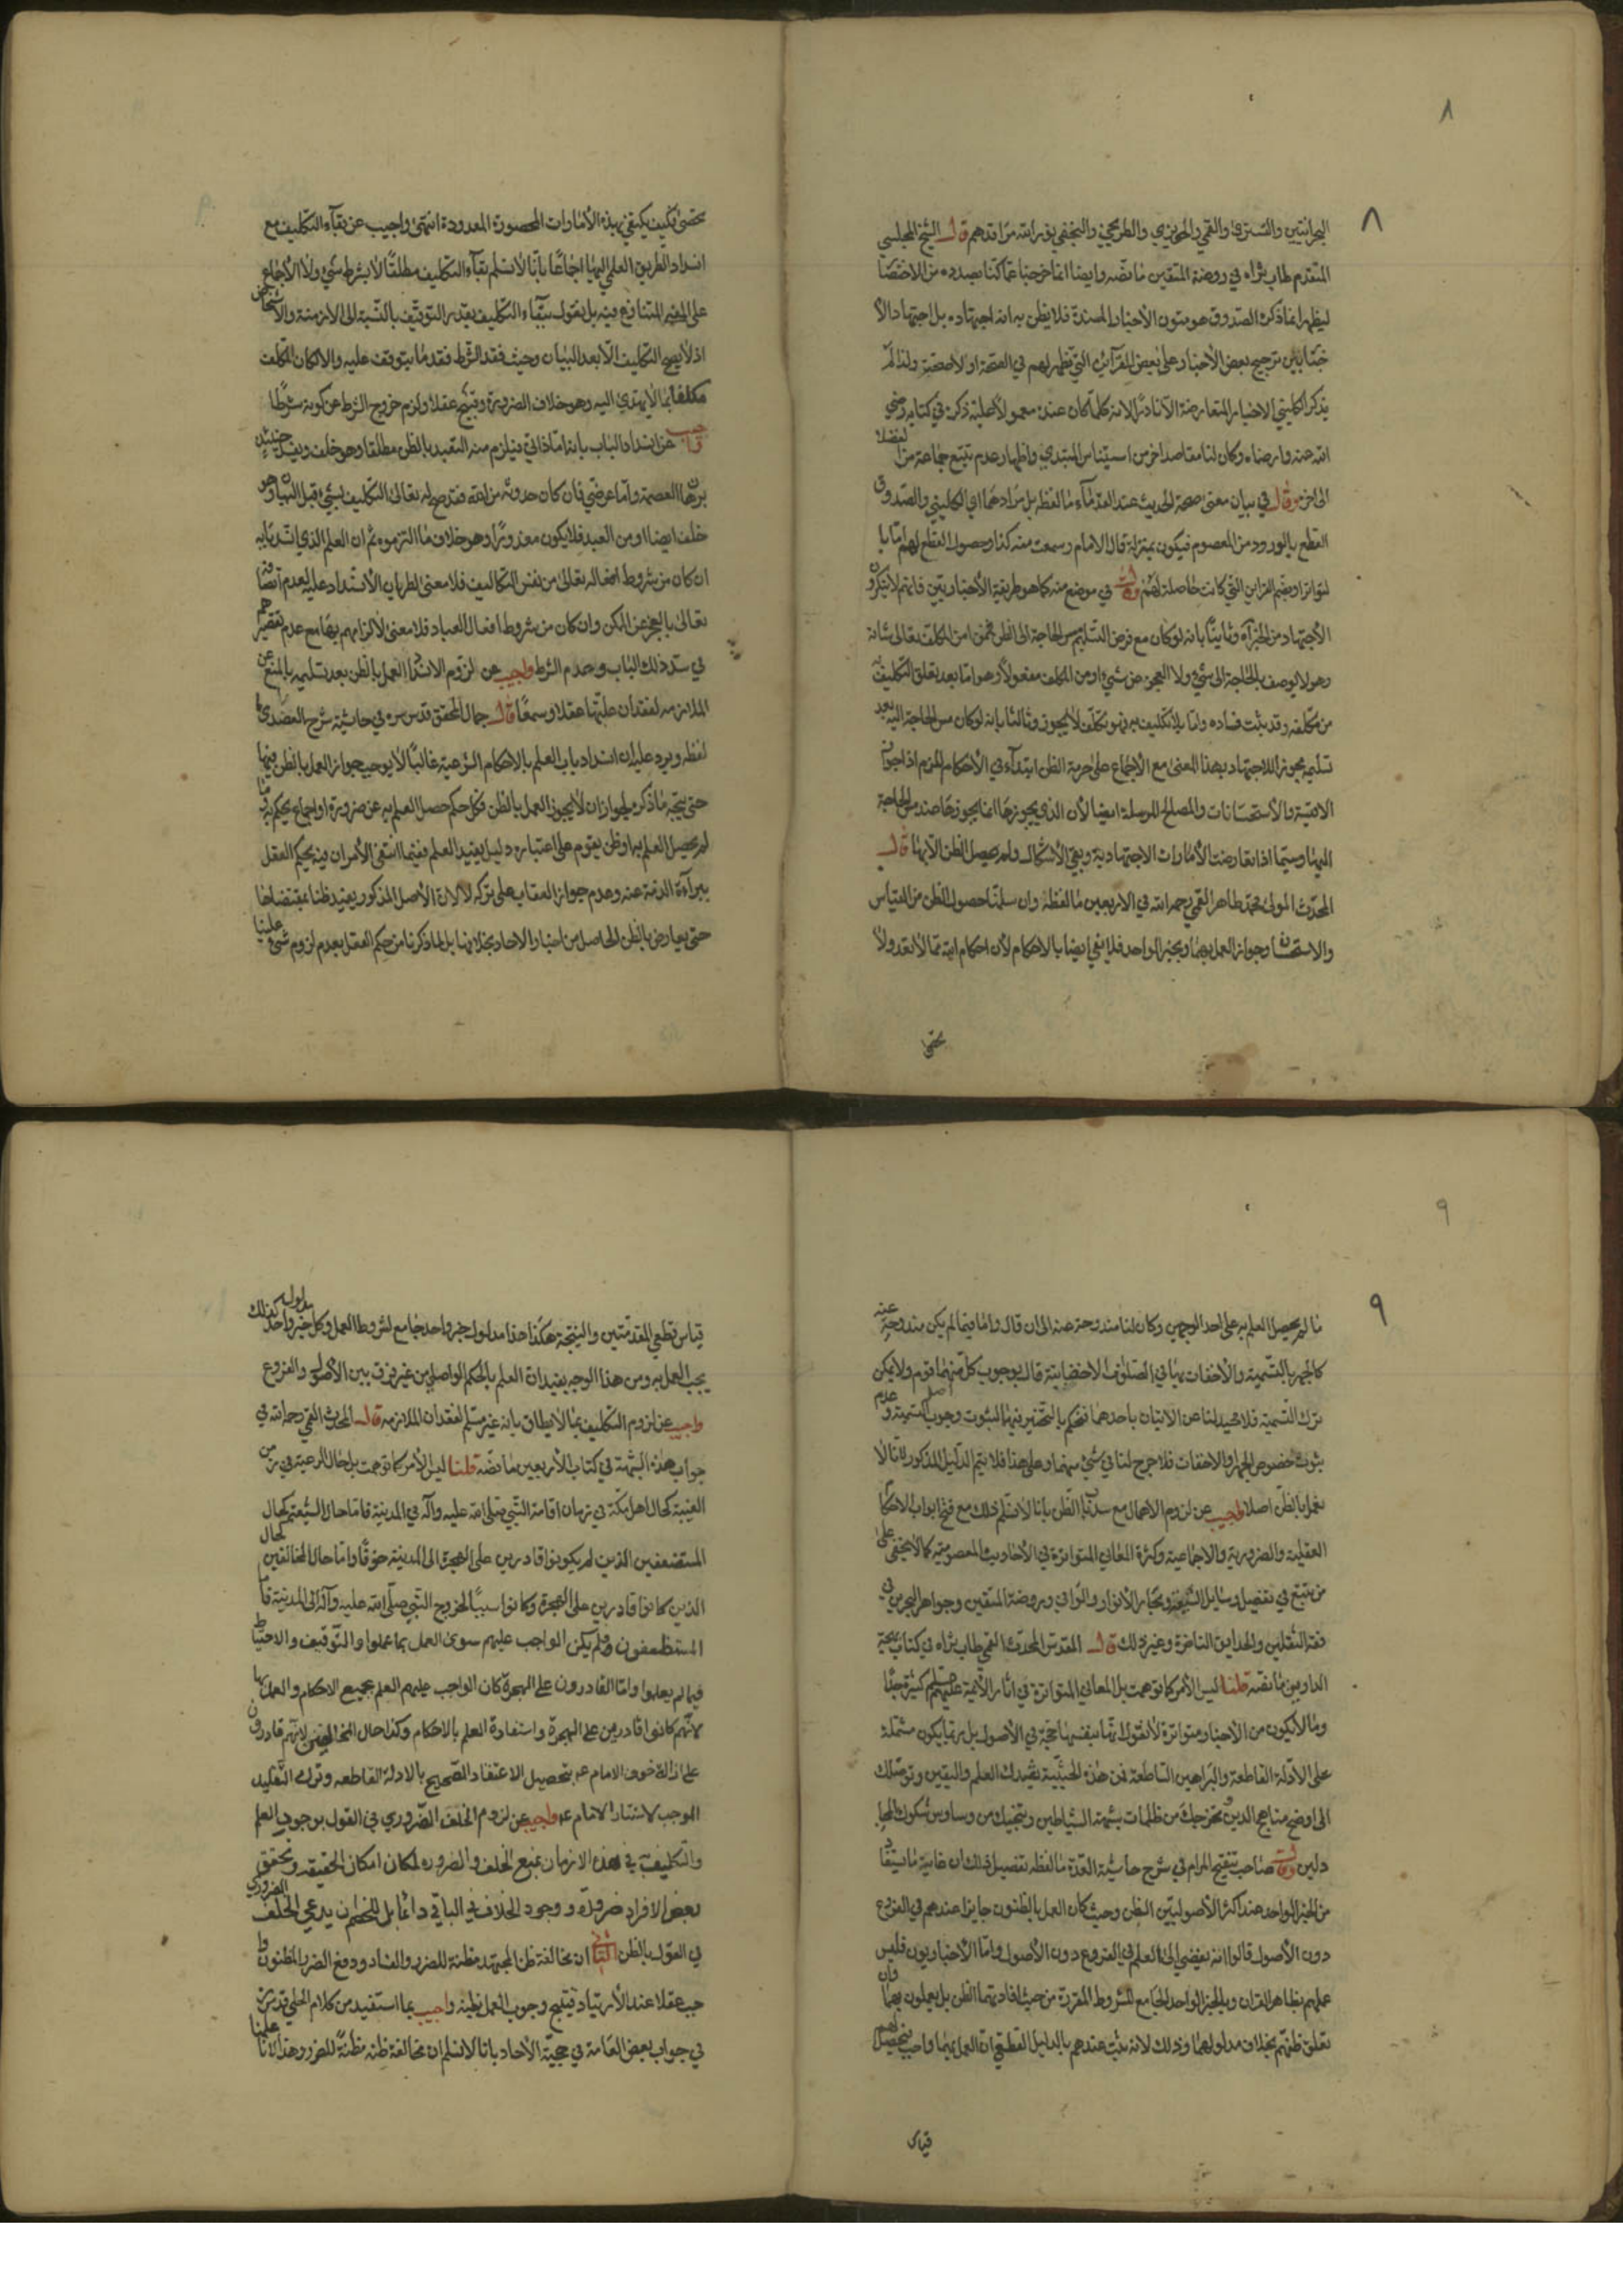 ٨
٨
البحرانيين والتستري والقمي والحويزي والطريحي والنجفي نور الله مراقدهم قال الشيخ المجلسي
المتقدم طاب ثراه في روضة المتقين ما نصه وايضا انما خرجنا عما كنا بصدده من الاختصا
ليظهر انما ذكره الصدوق هو متون الأخبار المسندة فلا يظن به انه اجتهاده بل اجتهاد الأ
ختباريين ترجيح بعض الأخبار على بعض للقرآئن التي تظهر لهم في الصحة او الاصحية ولذا لم
يذكر الكليني الاخبار المتعارضة الا نادرا لانه كلما كان عنده معمولا عليه ذكره في كتابه رضي
الله عنه وارضاه وكان لنا مقاصد اخر من استيناس المبتدي واظهار عدم تتبع جماعة من الفضلا
الى اخره وقال في بيان معنى صحة الحديث عند القدمآء ما لفظه بل مرادهما اي الكليني والصدوق
القطع بالورود من المعصوم فيكون بمنزلة قال الامام وسمعت منه كذا وحصول القطع لهم اما با
لتواتر او بضم القراين التي كانت حاصلة لهم وقال في موضع منه كما هو طريقة الأخباريين فانهم لا ينكرون
الأجتهاد من الخبر اه وثانيا بانه لو كان مع فرض التسليم مس الحاجة الى الظن فمن امن المكلف تعالى شانه
وهو لا يوصف بالحاجة الى شيء ولا العجز عن شيء او من المكلف مفعولا وهو اما بعد تعلق التكليف به
من مكلفه وقد بينت فساده واما بلا تكليف به فهو تكلف لا يجوز وثالثا بانه لو كان مس الحاجة اليه بعد
تسليمه مجوز للاجتهاد بهذا المعنى مع الأجماع على حرمة الظن ابتدآء في الأحكام لزم اذا جواز
الاقيسة والأستحسانات والمصالح المرسلة ايضا لأن الذي يجوزها انما يجوزها عند مس الحاجة
اليها وسيما اذا تعارضت الأمارات الاجتهادية وبقي الأشكال ولم يحصل الظن الا بها قال
المحدث المولى محمد طاهر القمي رحمه الله في الاربعين ما لفظه وان سلمنا حصول الظن من القياس
والاستحسان وجواز العمل بهما وبخبر الواحد فلا يفي ايضا بالاحكام لأن احكام الله مما لا تعد ولا
تحصى
تحصى فكيف يكتفى بهذه الأمارات المحصورة المعدودة انتهى واجيب عن بقآء التكليف مع
انسداد الطريق العلمي اليها اجماعا بأنا لا نسلم بقآء التكليف مطلقا لا بشرط شيء ولا الأجماع
على المتنازع فيه بل نقول ببقآء التكليف بقدر التوقيف بالنسبة الى الازمنة والأشخاص
اذ لا يصح التكليف الا بعد البيان وحيث فقد الشرط فقد ما يتوقف عليه والا لكان المكلف
مكلفا بما لا يهتدي اليه وهو خلاف الضرورة وقبيح عقلا ولزم خروج الشرط عن كونه شرطا
واجيب عن انسداد الباب بانه اما ذاتي فيلزم منه التعبد بالظن مطلقا وهو خلف ويفسد حينئذ
برهان العصمة واما عرضي فان كان حدوثه من الله فقد صح له تعالى التكليف بشيء قبل البيان وهو
خلف ايضا او من العبد فلا يكون معذورا وهو خلاف ما التزموه ثم ان العلم الذي انسد بابه
ان كان من شروط افعاله تعالى من نفس التكاليف فلا معنى لطريان الأنسداد عليه لعدم اتصافه
تعالى بالعجز عن الممكن وان كان من شروط افعال العباد فلا معنى لالزامهم بها مع عدم تقصيرهم
في سد ذلك الباب وعدم الشرط واجيب عن لزوم الانسداد العمل بالظن بعد تسليمه بالمنع عن
الملازمه لفقدان عليتها عقلا وسمعا قال جمال المحقق قدس سره في حاشية شرح العضدي ما
لفظه ويرد عليه ان انسداد باب العلم بالاحكام الشرعية غالبا لا يوجب جواز العمل بالظن فيها
حتى يتجه ما ذكره لجواز ان لا يجوز العمل بالظن فكل حكم حصل العلم به عن ضرورة او اجماع يحكم به وما
لم يحصل العلم به او ظن يقوم على اعتباره دليل يفيد العلم ففيما انتفى الأمران فيه يحكم العقل
ببرآءة الذمة عنه وعدم جواز العقاب على تركه لا لان الأصل المذكور يفيد ظنا بمقتضاها
حتى يعارض بالظن الحاصل من اخبار الاحاد بخلافها بل لما ذكرنا من حكم العقل بعدم لزوم شيء علينا
٩
٩
ما لم يحصل العلم به على احد الوجهين وكان لنا مندوحة عنه الى ان قال واما فيما لم يكن مندوحة عنه
كالجهر بالتسمية والأخفات بها في الصلوة الاخفاتية قال بوجوب كل منهما قوم ولا يمكن
ترك التسمية فلا محيد لنا عن الاتيان باحدهما فنحكم بالتخيير فيها لثبوت وجوب اصل التسمية وعدم
ثبوت خصوص الجهر او الاخفات فلا حرج لنا في شيء منهما وعلى هذا فلا يتم الدليل المذكور لأنا لا
نعمل بالظن اصلا واجيب عن لزوم الاهمال مع سد باب الظن بانا لا نسلم ذلك مع فتح ابواب الاحكام
العقلية والضرورية والاجماعية وكثرة المعاني المتواترة في الأحاديث المعصومية كما لا يخفى على
من تتبع في تفصيل وسايل الشيعة وبحار الأنوار والوافي وروضة المتقين وجواهر البحرين في
فقه الثقلين والحدايق الناضرة وغير ذلك قال المقدس المحدث القمي طاب ثراه في كتاب بهجة
الدارين ما نصه قلنا ليس الأمر كما توهمت بل المعاني المتواترة في اثار الأئمة عليهم السلم كثيرة جدا
وما لا يكون من الأخبار متواترة لا نقول انها بنفسها حجة في الأصول بل ربما يكون مشتملة
على الأدلة القاطعة والبراهين الساطعة فمن هذه الحيثية تفيدك العلم واليقين وتوصلك
الى اوضح مناهج الدين وتخرجك من ظلمات شبهة الشياطين وتنجيك من وساوس شكوك المجا
دلين وقال صاحب تنقيح المرام في شرح حاشية العدة ما لفظه تفصيل ذلك ان غاية ما يستفاد
من الخبر الواحد عند اكثر الأصوليين الظن وحيث كان العمل بالظنون جايزا عندهم في الفروع
دون الأصول قالوا انه يفضي الى العلم في الفروع دون الأصول واما الأخباريون فليس
عملهم بظاهر القران وبالخبر الواحد الجامع للشروط المقررة من حيث افادتهما الظن بل يعملون بهما وان
تعلق ظنهم بخلاف مدلولهما وذلك لانه ثبت عندهم بالدليل القطعي ان العمل بهما واجب فيحصل لهم
قياس
قياس قطعي المقدمتين والنتيجة هكذا هذا مدلول خبر واحد جامع لشروط العمل وكل خبر واحد مدلوله كذلك
يجب العمل به ومن هذا الوجه يفيدان العلم بالحكم الواصلي من غير فرق بين الأصول والفروع
واجيب عن لزوم التكليف بما لا يطاق بانه غير مسلم لفقدان الملازمه قال المحدث القمي رحمه الله في
جواب هذه الشبهة في كتاب الأربعين ما نصه قلنا ليس الأمر كما توهمت بل حال الرعية في زمن
الغيبة كحال اهل مكة في زمان اقامة النبي صلى الله عليه وآله في المدينة فاما حال الشيعة كحال
المستضعفين الذين لم يكونوا قادرين على الهجرة الى المدينة خوفا واما حال المخالفين كحال
الذين كانوا قادرين على الهجرة وكانوا سببا لخروج النبي صلى الله عليه وآله الى المدينة فا
المستضعفون فلم يكن الواجب عليهم سوى العمل بما علموا والتوقيف والاحتياط
فيما لم يعلموا واما القادرون على الهجرة كان الواجب عليهم العلم بجميع الاحكام والعمل بها
لانهم كانوا قادرين على الهجرة واستفادة العلم بالاحكام وكذا حال المخالفين لانهم قادرون
على ازالة خوف الامام ع بتحصيل الاعتقاد الصحيح بالادلة القاطعه وترك التقليد
الموجب لاستتار الامام ع واجيب عن لزوم الخلف الضروري في القول بوجود العلم
والتكليف في هذه الازمان بمنع الخلف والضروره لمكان امكان الحقيقه وتحقق
بعض الافراد ضرورة ووجود الخلاف في الباقي دائما بل للخصم ان يدعي الخلف الضروري
في القول بالظن الثاني ان مخالفة ظن المجتهد مظنة للضرر والفساد ودفع الضرر المظنون وا
جب عقلا عند الأرتياد فينتج وجوب العمل بظنه واجيب بما استفيد من كلام الحلي قدس سره
في جواب بعض العامة في حجية الأحاد بانا لا نسلم ان مخالفة ظنه مظنة للضرر وهذا لانا علمنا